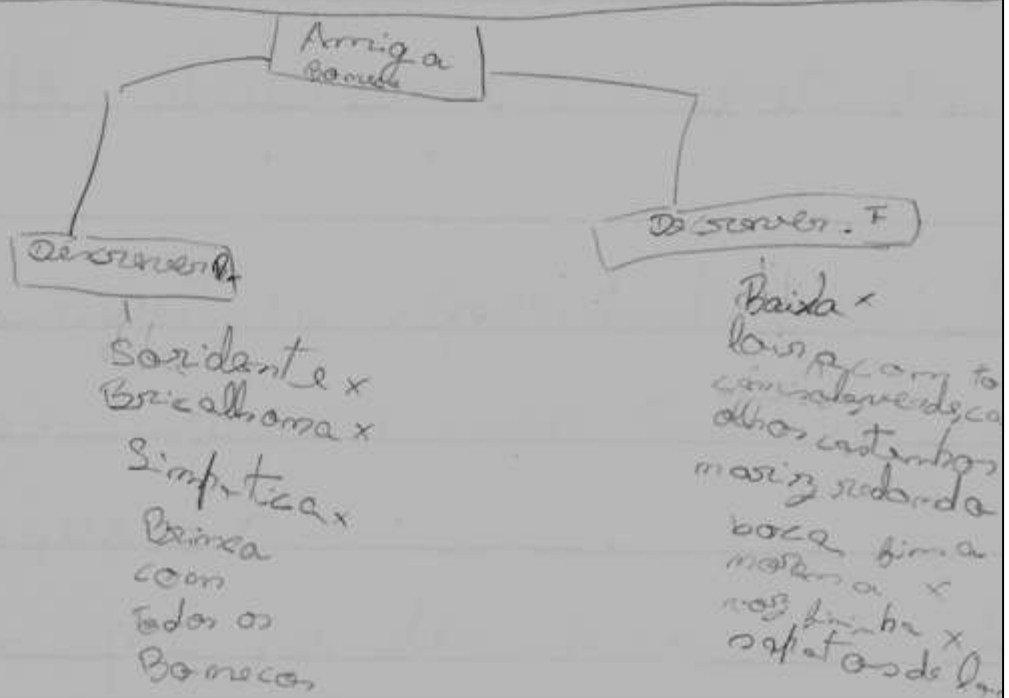 Amiga
Boneca
Descrever P.
Soridente x
Bricalhona x
Simpatica x
Brinca
com
Todos os
Bonecos
Descrever. F
Baixa x
loira, com to
camisola, verde, ca
olhos castanhos
nariz redondo
boca fina
morena x
voz fininha x
sapatos de